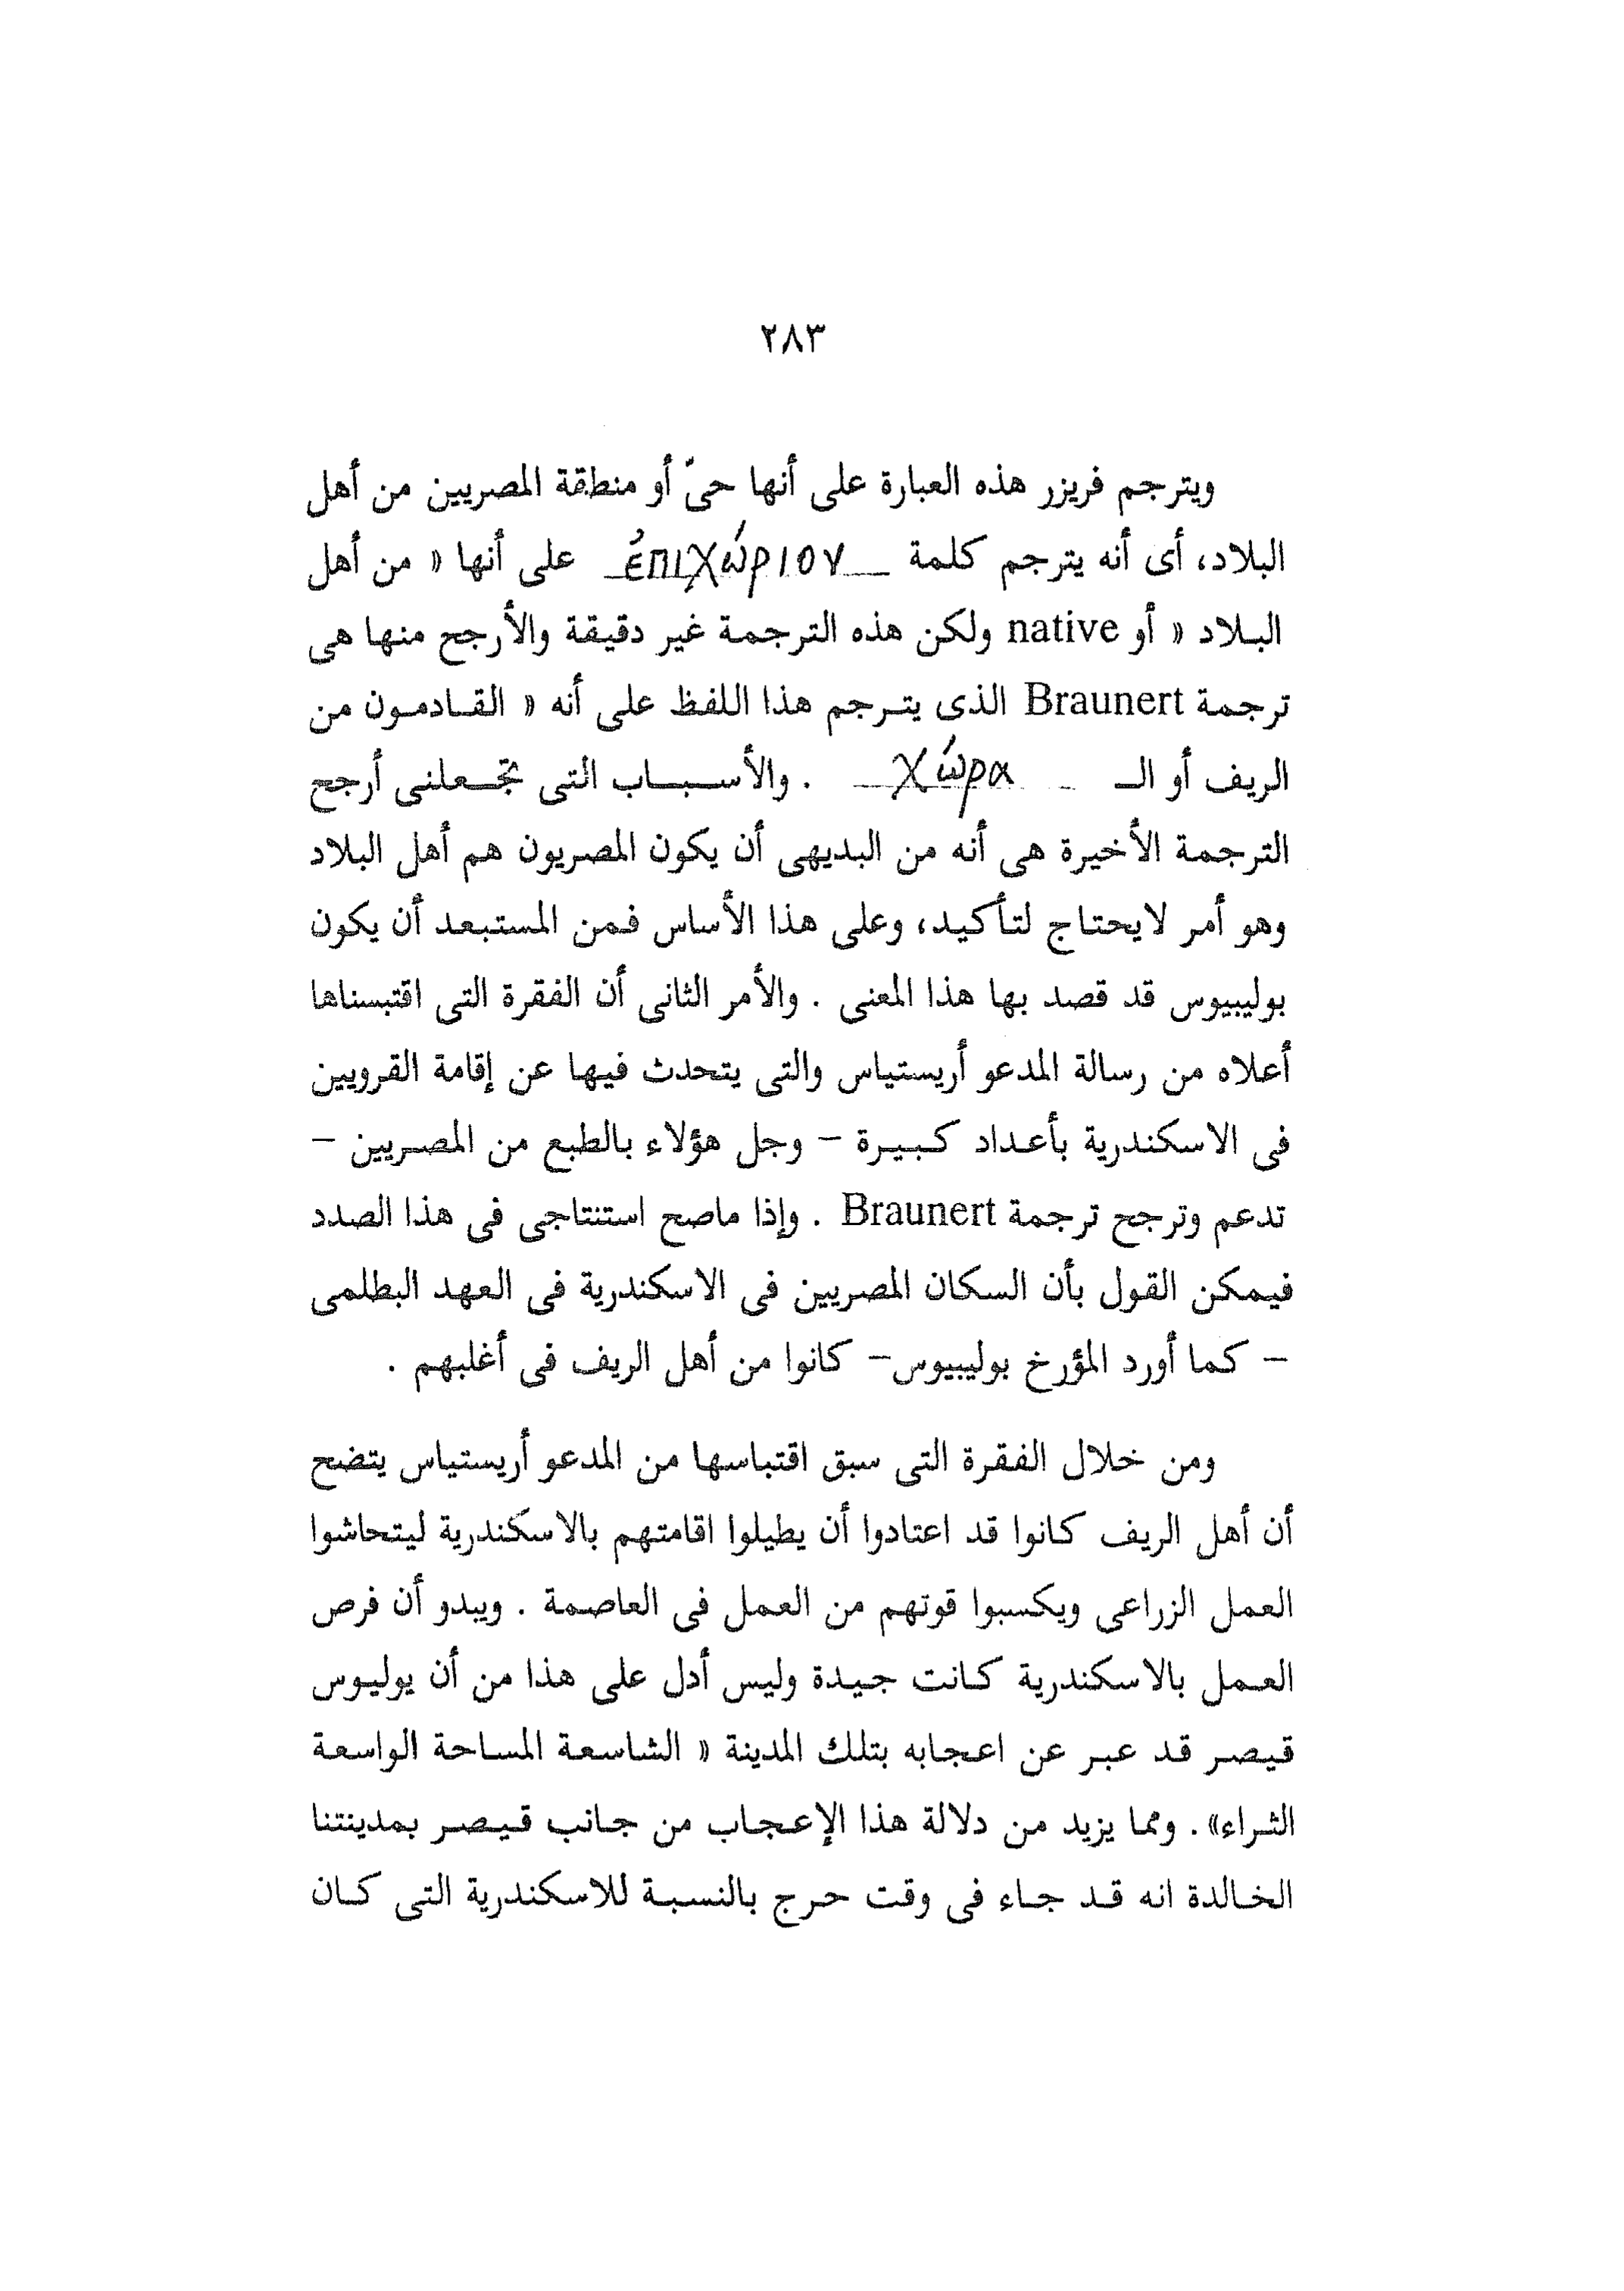 ٢٨٣
ويترجم فريزر هذه العبارة على أنها حىّ أو منطقة المصريين من أهل
البلاد، أى أنه يترجم كلمة ἐπιχώριον على أنها « من أهل
البلاد » أو native ولكن هذه الترجمة غير دقيقة والأرجح منها هى
ترجمة Braunert الذى يترجم هذا اللفظ على أنه « القادمون من
الريف أو الـ χώρα . والأسباب التى تجعلنى أرجح
الترجمة الأخيرة هى أنه من البديهى أن يكون المصريون هم أهل البلاد
وهو أمر لايحتاج لتأكيد، وعلى هذا الأساس فمن المستبعد أن يكون
بوليبيوس قد قصد بها هذا المعنى . والأمر الثانى أن الفقرة التى اقتبسناها
أعلاه من رسالة المدعو أريستياس والتى يتحدث فيها عن إقامة القرويين
فى الاسكندرية بأعداد كبيرة – وجل هؤلاء بالطبع من المصريين –
تدعم وترجح ترجمة Braunert . وإذا ماصح استنتاجى فى هذا الصدد
فيمكن القول بأن السكان المصريين فى الاسكندرية فى العهد البطلمى
– كما أورد المؤرخ بوليبيوس– كانوا من أهل الريف فى أغلبهم .
ومن خلال الفقرة التى سبق اقتباسها من المدعو أريستياس يتضح
أن أهل الريف كانوا قد اعتادوا أن يطيلوا اقامتهم بالاسكندرية ليتحاشوا
العمل الزراعى ويكسبوا قوتهم من العمل فى العاصمة . ويبدو أن فرص
العمل بالاسكندرية كانت جيدة وليس أدل على هذا من أن يوليوس
قيصر قد عبر عن اعجابه بتلك المدينة « الشاسعة المساحة الواسعة
الثراء» . ومما يزيد من دلالة هذا الإعجاب من جانب قيصر بمدينتنا
الخالدة انه قد جاء فى وقت حرج بالنسبة للاسكندرية التى كان